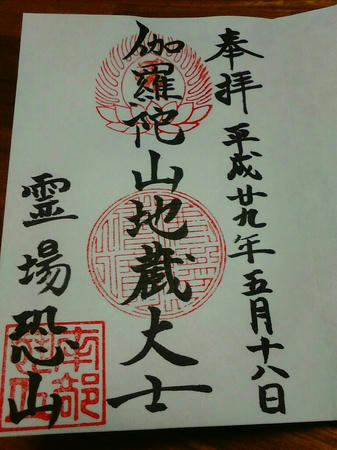 奉拝 平成廿九年五月十八日
伽羅陀山地蔵大士
霊場恐山